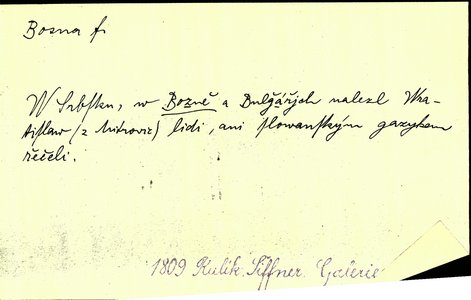 Bosna f.
W Srbsku, w Bozně a Bulgářjch nalezl Wra-
tislaw (z Mitrowic) lidi, ani slowanským gazykem
řečeli.
1809 Rulík. Siffner. Galerie